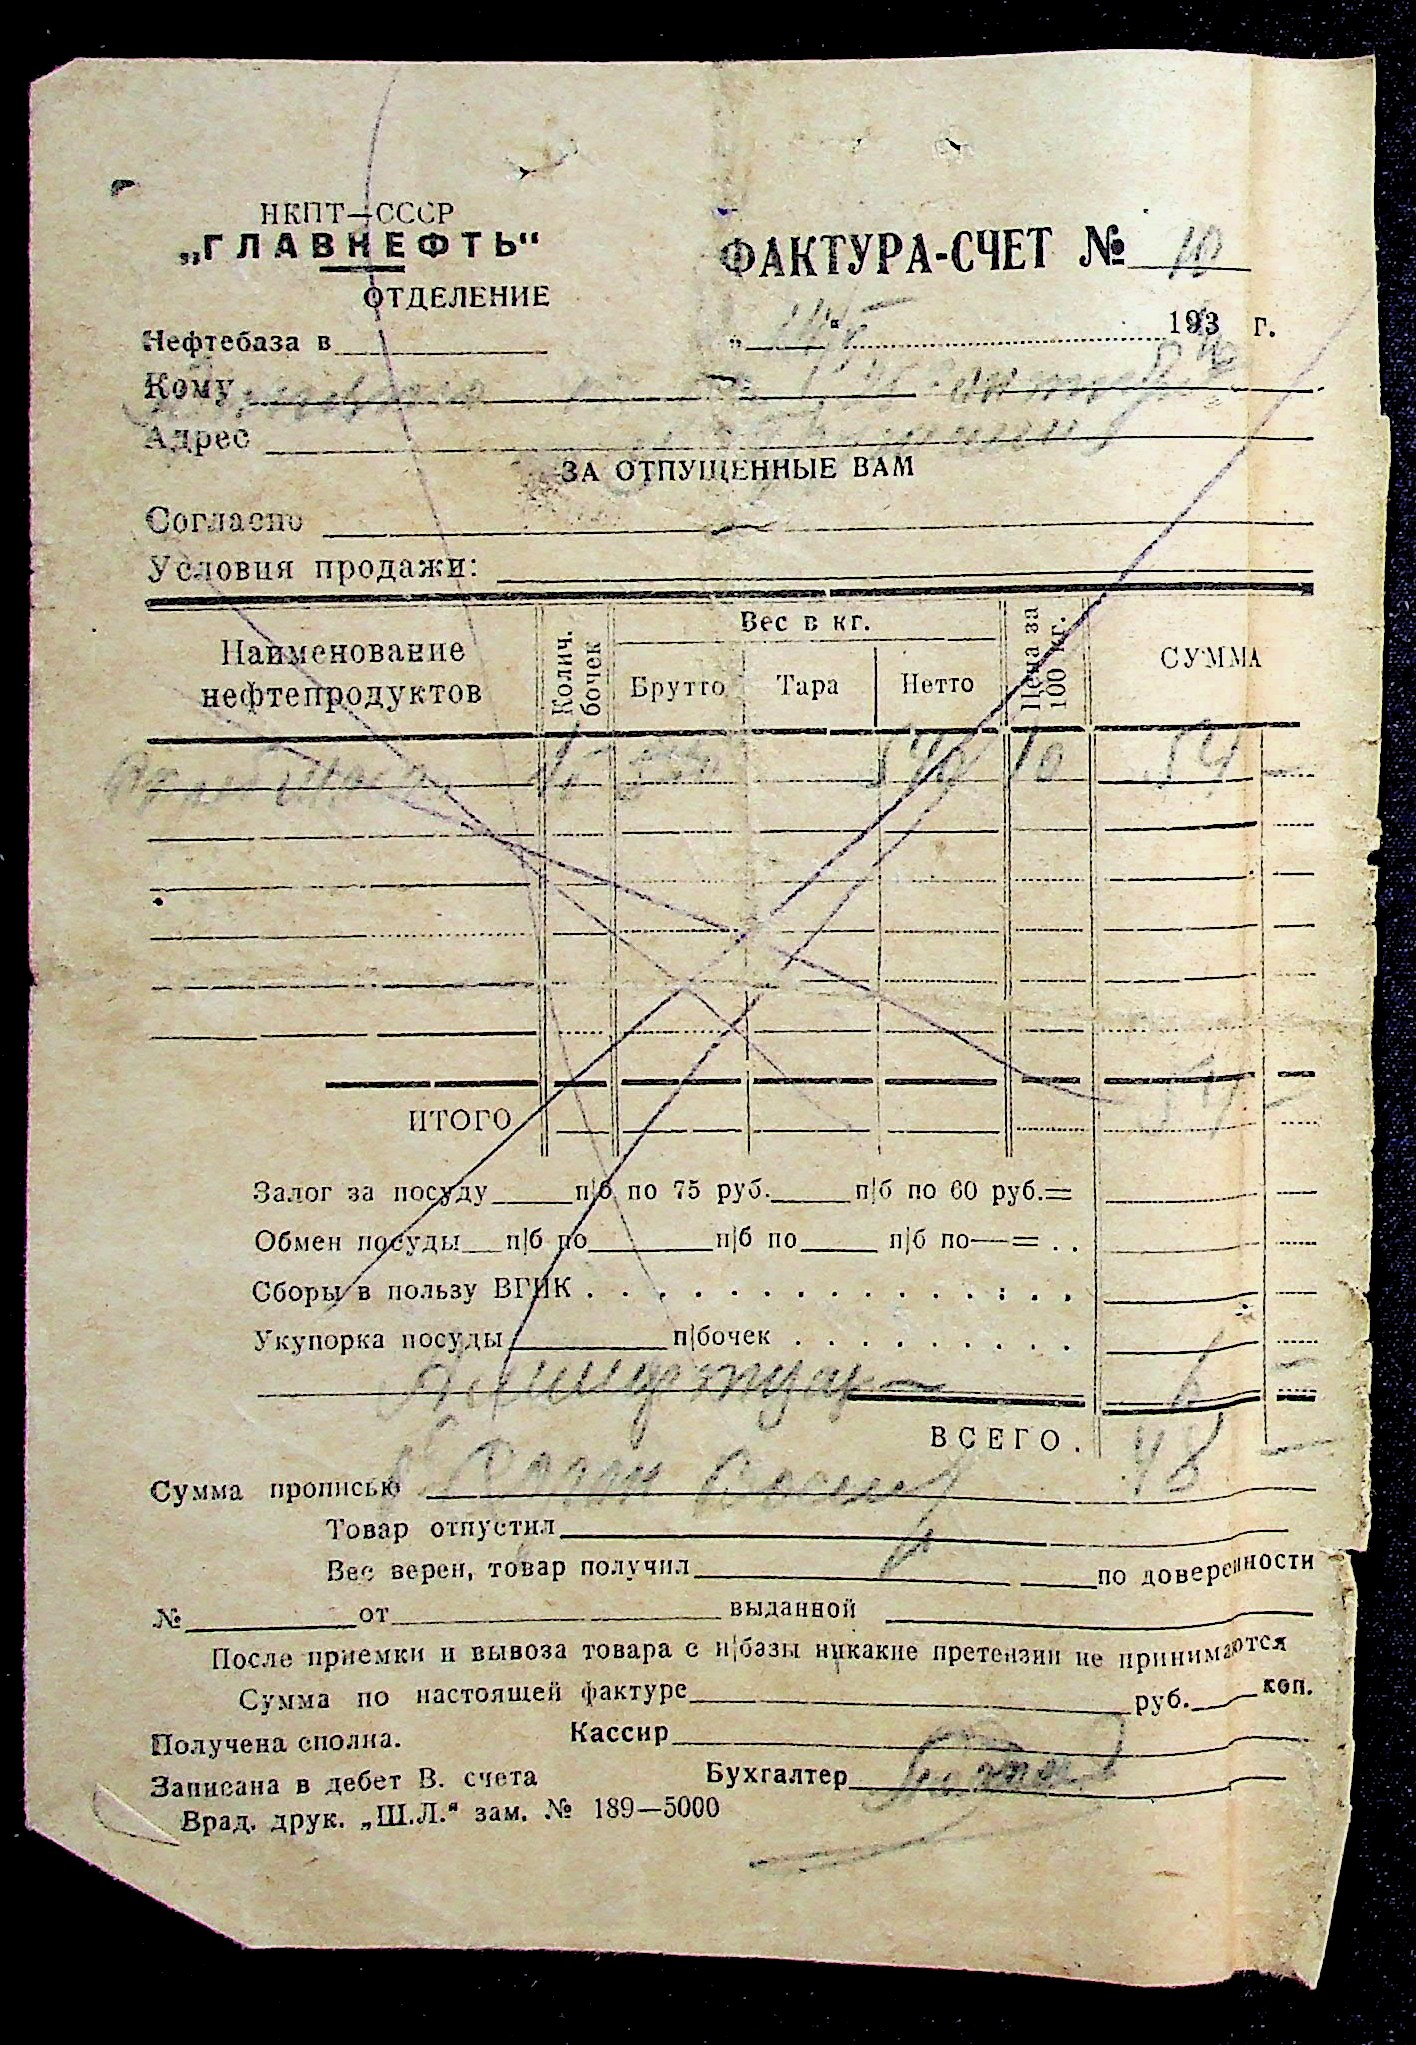 НКПТ—СССР
„ГЛАВНЕФТЬ“
ОТДЕЛЕНИЕ
ФАКТУРА-СЧЕТ № 10
Нефтебаза в
„ “ 193 г.
Кому
Адрес
ЗА ОТПУЩЕННЫЕ ВАМ
Согласно
Условия продажи:
Наименование нефтепродуктов
Колич. бочек
Вес в кг.
Брутто Тара Нетто
Цена за 100 кг.
СУММА
540 10 54 —
ИТОГО 54 —
Залог за посуду п|б по 75 руб. п|б по 60 руб.=
Обмен посуды п|б по п|б по п|б по—= . .
Сборы в пользу ВГИК . . . . . . . . . . . . . . .
Укупорка посуды п|бочек . . . . . . . . .
6 —
ВСЕГО. 48 —
Сумма прописью
Товар отпустил
Вес верен, товар получил по доверенности
№ от выданной
После приемки и вывоза товара с н|базы никакие претензии не принимаются
Сумма по настоящей фактуре руб. коп.
Получена сполна. Кассир
Записана в дебет В. счета Бухгалтер
Врад. друк. „Ш.Л.“ зам. № 189—5000